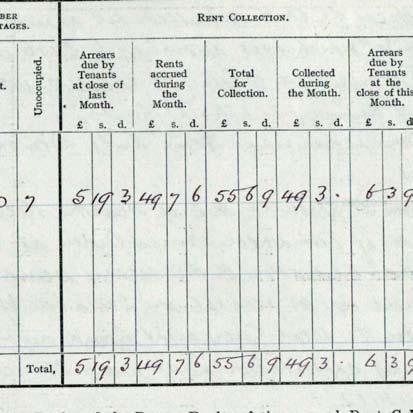 BER
TAGES.
RENT COLLECTION.
t.
Unoccupied.
Arrears
due by
Tenants
at close of
last
Month.
Rents
accrued
during
the
Month.
Total
for
Collection.
Collected
during
the Month.
Arrears
due by
Tenants
at the
close of this
Month
£ s. d. £ s. d. £ s. d. £ s. d. £ s. d
0 7 5 19 3 49 7 6 55 6 9 49 3 · 6 3 9
Total, 5 19 3 49 7 6 55 6 9 49 3 · 6 3 9